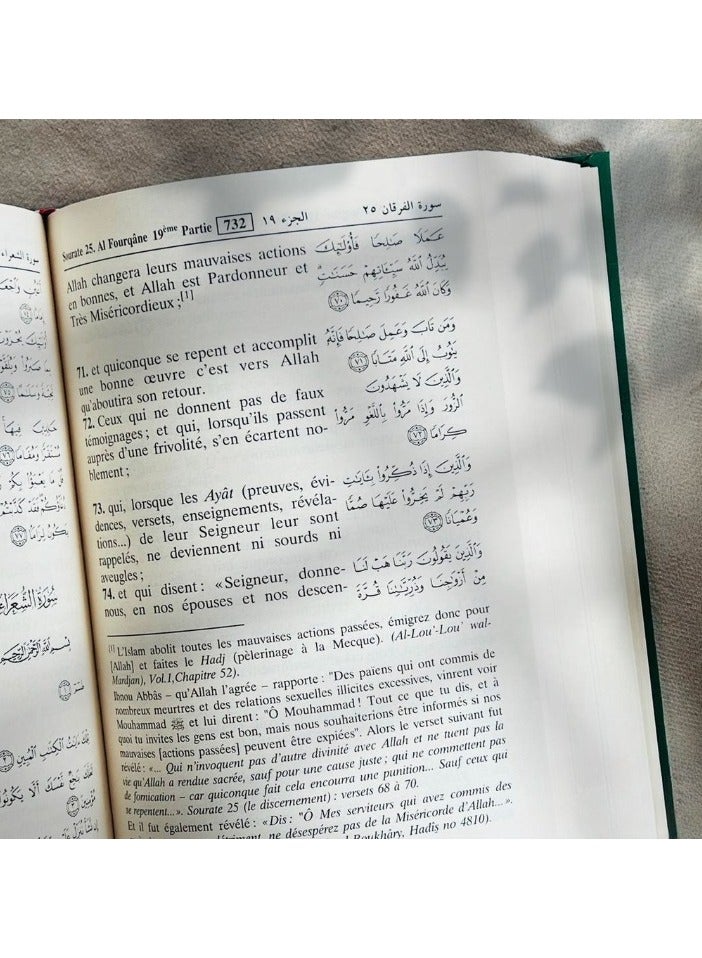 Sourate 25. Al Fourqâne 19ème Partie 732 الجزء ١٩ سورة الفرقان ٢٥
Allah changera leurs mauvaises actions
en bonnes, et Allah est Pardonneur et
Très Miséricordieux ;[1]
71. et quiconque se repent et accomplit
une bonne œuvre c'est vers Allah
qu'aboutira son retour.
72. Ceux qui ne donnent pas de faux
témoignages ; et qui, lorsqu'ils passent
auprès d'une frivolité, s'en écartent no-
blement ;
73. qui, lorsque les Ayât (preuves, évi-
dences, versets, enseignements, révéla-
tions...) de leur Seigneur leur sont
rappelés, ne deviennent ni sourds ni
aveugles ;
74. et qui disent : «Seigneur, donne-
nous, en nos épouses et nos descen-
عَمَلًا صَٰلِحًا فَأُو۟لَٰٓئِكَ
يُبَدِّلُ ٱللَّهُ سَيِّـَٔاتِهِمْ حَسَنَٰتٍ ۗ
وَكَانَ ٱللَّهُ غَفُورًا رَّحِيمًا ٧٠
وَمَن تَابَ وَعَمِلَ صَٰلِحًا فَإِنَّهُۥ
يَتُوبُ إِلَى ٱللَّهِ مَتَابًا ٧١
وَٱلَّذِينَ لَا يَشْهَدُونَ
ٱلزُّورَ وَإِذَا مَرُّوا۟ بِٱللَّغْوِ مَرُّوا۟
كِرَامًا ٧٢
وَٱلَّذِينَ إِذَا ذُكِّرُوا۟ بِـَٔايَٰتِ
رَبِّهِمْ لَمْ يَخِرُّوا۟ عَلَيْهَا صُمًّا
وَعُمْيَانًا ٧٣
وَٱلَّذِينَ يَقُولُونَ رَبَّنَا هَبْ لَنَا
مِنْ أَزْوَٰجِنَا وَذُرِّيَّٰتِنَا قُرَّةَ
[1] L'Islam abolit toutes les mauvaises actions passées, émigrez donc pour
[Allah] et faites le Hadj (pèlerinage à la Mecque). (Al-Lou'-Lou' wal-
Mardjan), Vol.1,Chapitre 52).
Ibnou Abbâs – qu'Allah l'agrée – rapporte : "Des paiens qui ont commis de
nombreux meurtres et des relations sexuelles illicites excessives, vinrent voir
Mouhammad ﷺ et lui dirent : "Ô Mouhammad ! Tout ce que tu dis, et à
quoi tu invites les gens est bon, mais nous souhaiterions être informés si nos
mauvaises [actions passées] peuvent être expiées". Alors le verset suivant fut
révélé : «... Qui n'invoquent pas d'autre divinité avec Allah et ne tuent pas la
vie qu'Allah a rendue sacrée, sauf pour une cause juste ; qui ne commettent pas
de fornication – car quiconque fait cela encourra une punition... Sauf ceux qui
se repentent...». Sourate 25 (le discernement) : versets 68 à 70.
Et il fut également révélé : «Dis : "Ô Mes serviteurs qui avez commis des
détriment, ne désespérez pas de la Miséricorde d'Allah...».
Boukhâry, Hadis no 4810).
سورة الشعراء
سُورَةُ الشُّعَرَاءِ